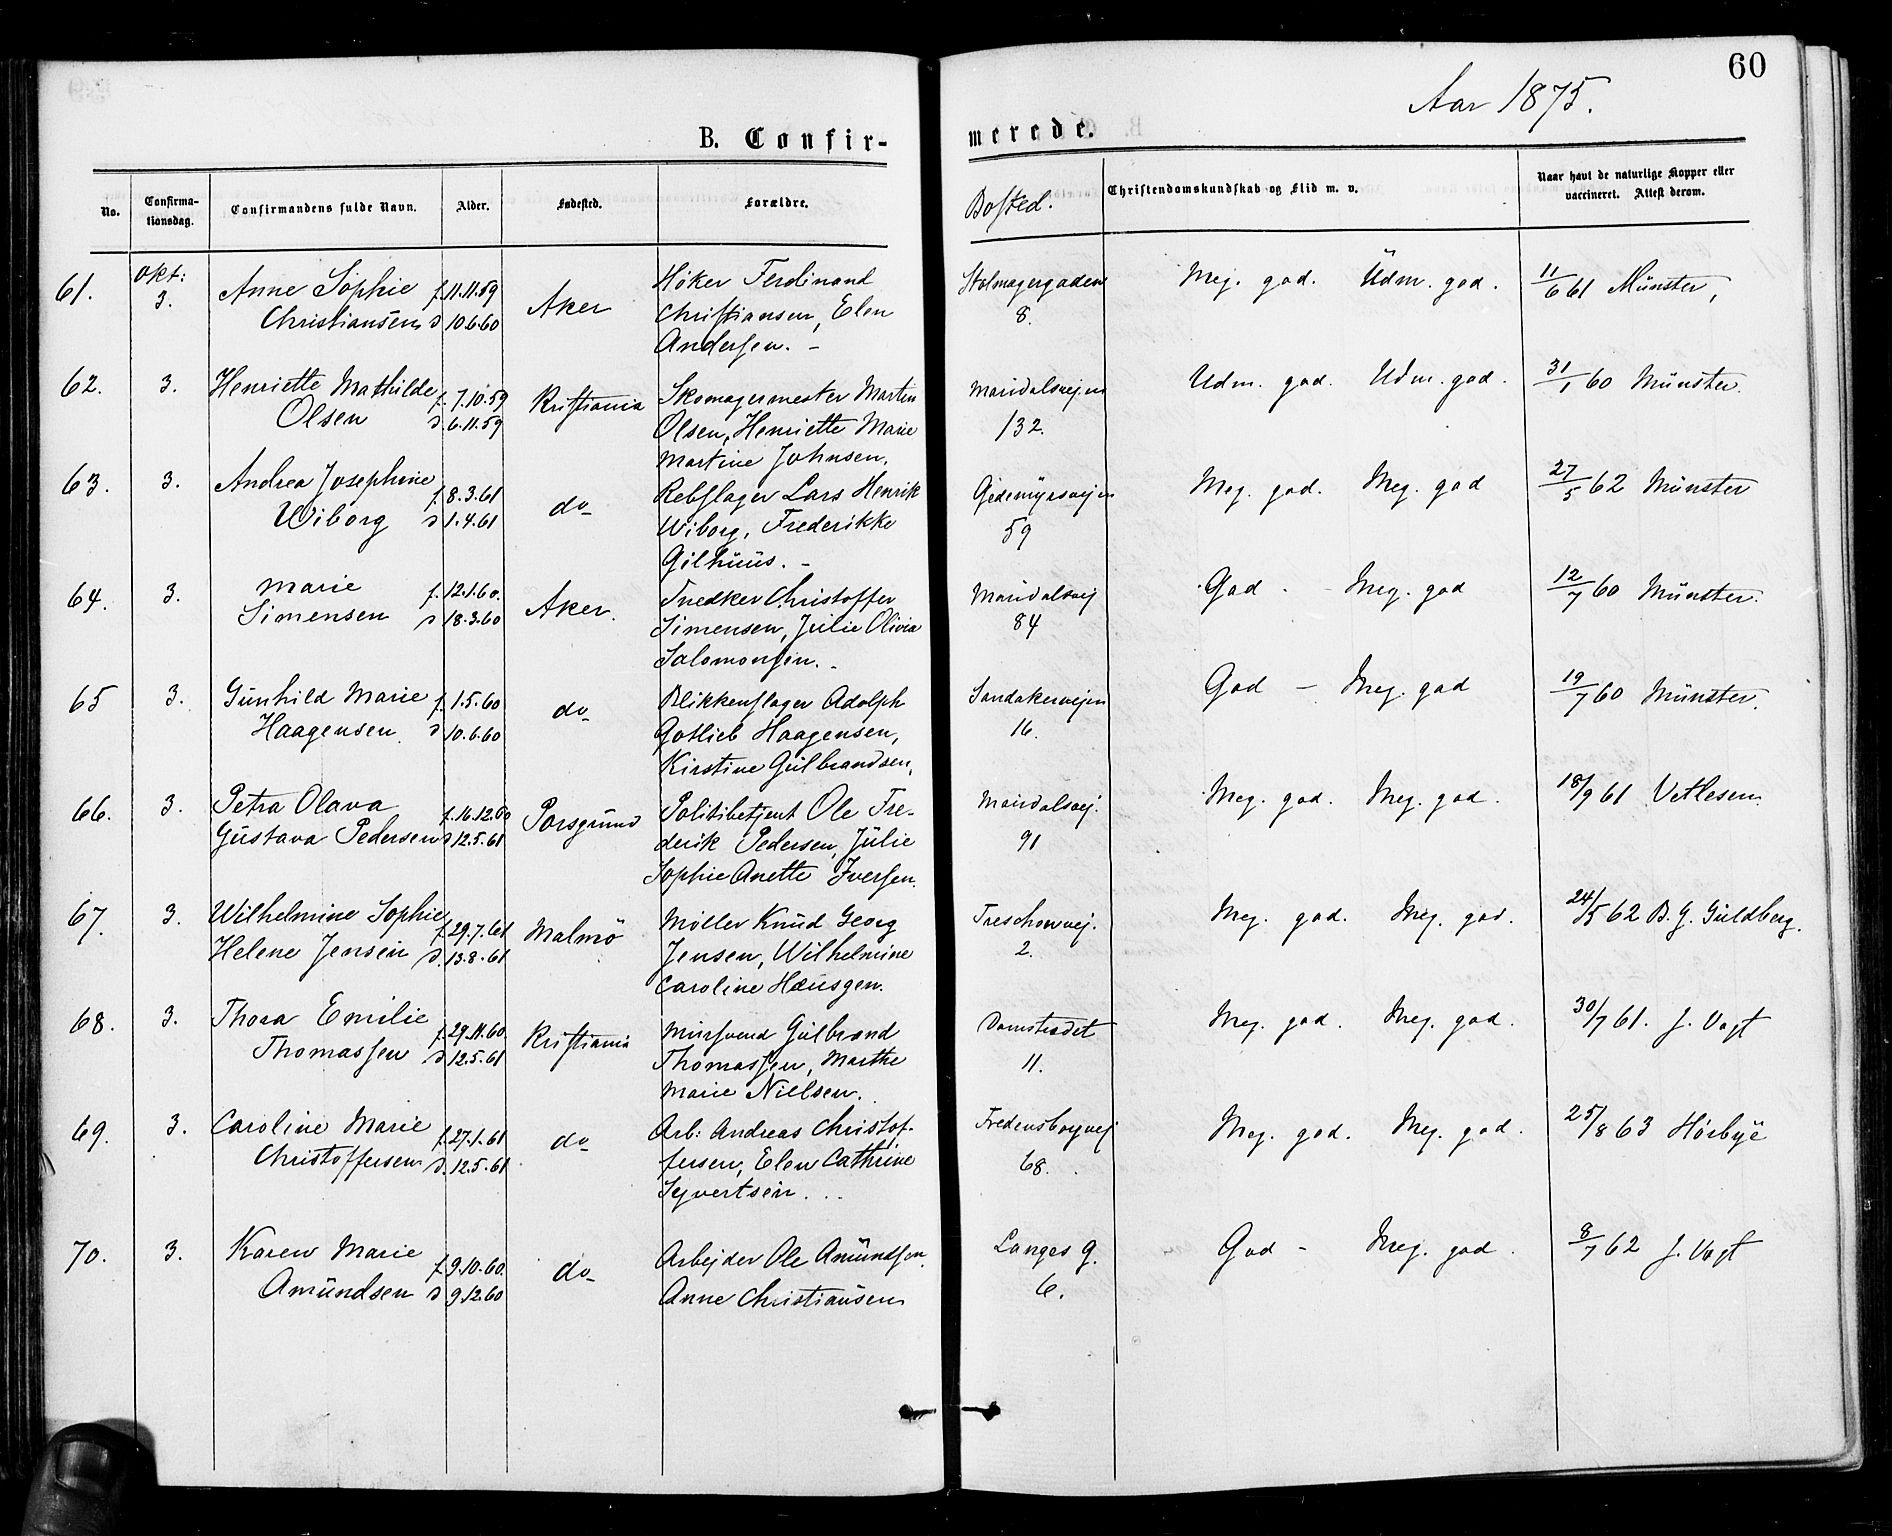 60
Aar 1875.
B. Confir-
merede.
No.
Confirma-
tionsdag.
Confirmandens fulde Navn.
Alder.
Fødested.
Forældre.
Bosted.
Christendomskundskab og Flid m. v.
Naar havt de naturlige Kopper eller
vaccineret. Attest derom.
61. Okt: 3. Anne Sophie f. 11.11.59 Aker Høker Ferdinand 8. Meg. god. Udm. god. 11/6 61 Münster,
Christiansen d 10.6.60 Christiansen, Elen
Andersen. –
62. 3. Henriette Mathilde f. 7.10.59 Kristiania Skomagermester Martin Maridalsvejen Udm. god. Udm. god. 31/1 60 Münster.
Olsen d. 6.11.59 Olsen, Henriette Marie 132.
Martine Johnsen.
63. 3. Andrea Josephine f. 8.3.61 do Rebslager Lars Henrik Gjedemyrsvejen Meg. god. Meg. god 27/5 62 Münster
Wiborg d 1.4.61 Wiborg, Frederikke 59
Gilhuus. –
64. 3. Marie f. 12.1.60. Aker. Snedker Christoffer Maridalsvej God - Meg. god 12/7 60 Münster.
Simensen d 18.3.60 Simensen, Julie Olivia 84
Salomonsen. -
65 3. Gunhild Marie f. 1.5.60 do Blikkenslager Adolph Sandakervejen God – Meg. god 19/7 60 Münster.
Haagensen d 10.6.60 Gotlieb Haagensen, 16.
Kirstine Gulbrandsen,
66. 3. Petra Olava f. 16.12.60 Porsgrund Politibetjent Ole Fre- Maridalsvej. Meg. god. Meg. god. 18/9 61 Vetlesen.
Gustava Pedersen d 12.5.61 derik Pedersen, Julie 91
Sophie Anette Iversen.
67. 3. Wilhelmine Sophie f. 29.7.61 Malmö Møller Knud Georg Treschowvej. Meg. god. Meg. god. 24/5 62 B. G. Guldberg.
Helene Jensen d. 13.8.61 Jensen, Wilhelmine 2.
Caroline Hæusgen.
68. 3. Thora Emilie f. 29.11.60. Kristiania Mursvend Gulbrand Damstredet Meg. god. Meg. god. 30/7 61. J. Vogt
Thomassen d 12.5.61 Thomassen, Marthe 11.
Marie Nielsen.
69. 3. Caroline Marie f. 27.1.61 do Arb: Andreas Christof- Fredensborgvej Meg. god. Meg. god. 25/8 63 Hørbye
Christoffersen d. 12.5.61 fersen, Elen Cathrine 68.
Syvertsen.
70. 3. Karen Marie f. 9.10.60. do Arbejder Ole Amundsen Langes g. God - Meg. god. 8/7 62 J. Vogt
Amundsen d 9.12.60 Anne Christiansen 6.